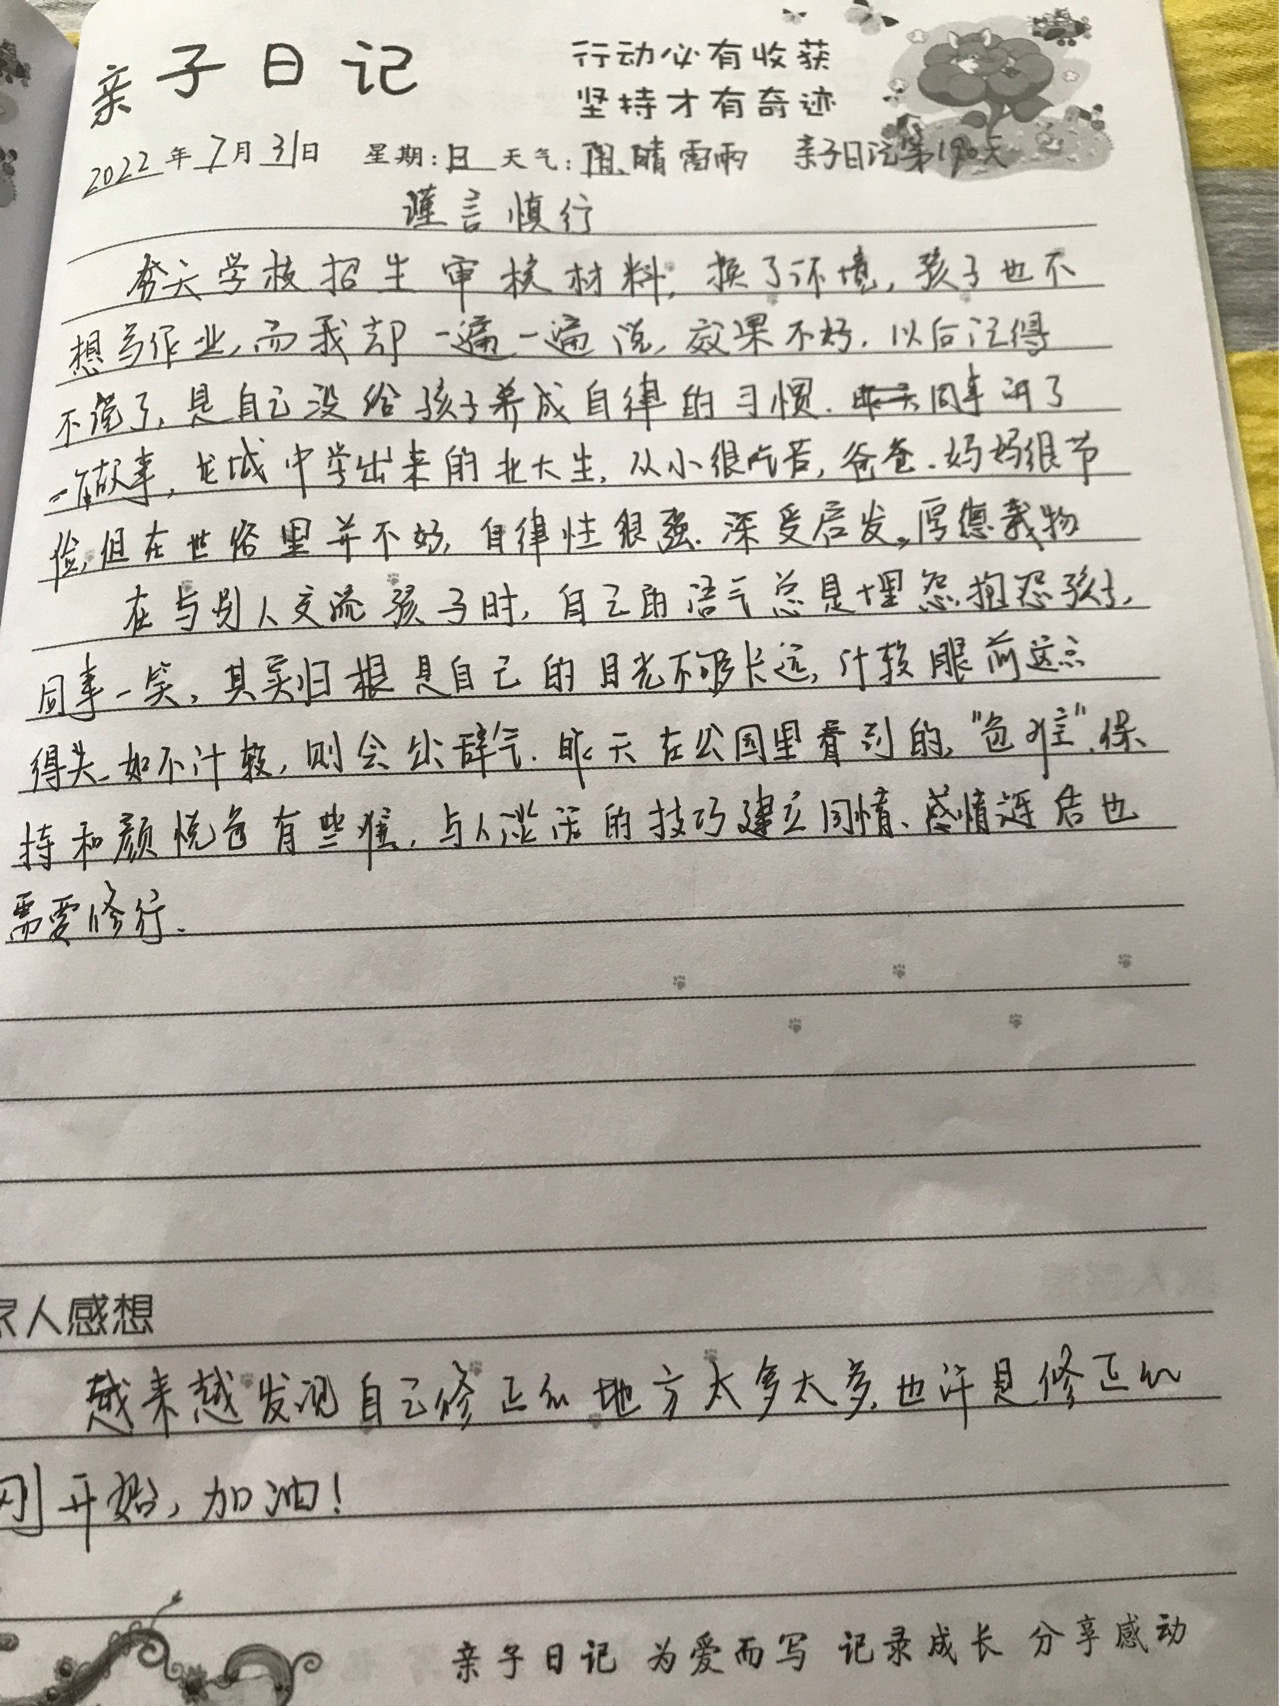 亲子日记
行动必有收获
坚持才有奇迹
2022年7月31日 星期:日 天气:阴、晴雷雨 亲子日记第190天
谨言慎行
今天学校招生审核材料,换了环境,孩子也不
想写作业,而我却一遍一遍说,效果不好.以后记得
不说了,是自己没给孩子养成自律的习惯.同事讲了
一个故事,龙城中学出来的北大生,从小很吃苦,爸爸.妈妈很节
俭,但在世俗里并不好,自律性很强.深受启发。厚德载物
在与别人交流孩子时,自己的语气总是埋怨抱怨孩子,
同事一笑,其实归根是自己的目光不够长远,计较眼前这点
得失.如不计较,则会出辞气.昨天在公园里看到的,"色难".保
持和颜悦色有些难,与人谈话的技巧建立同情、感情连结也
需要修行.
家人感想
越来越发现自己修正的地方太多太多,也许是修正的
刚开始,加油!
亲子日记 为爱而写 记录成长 分享感动